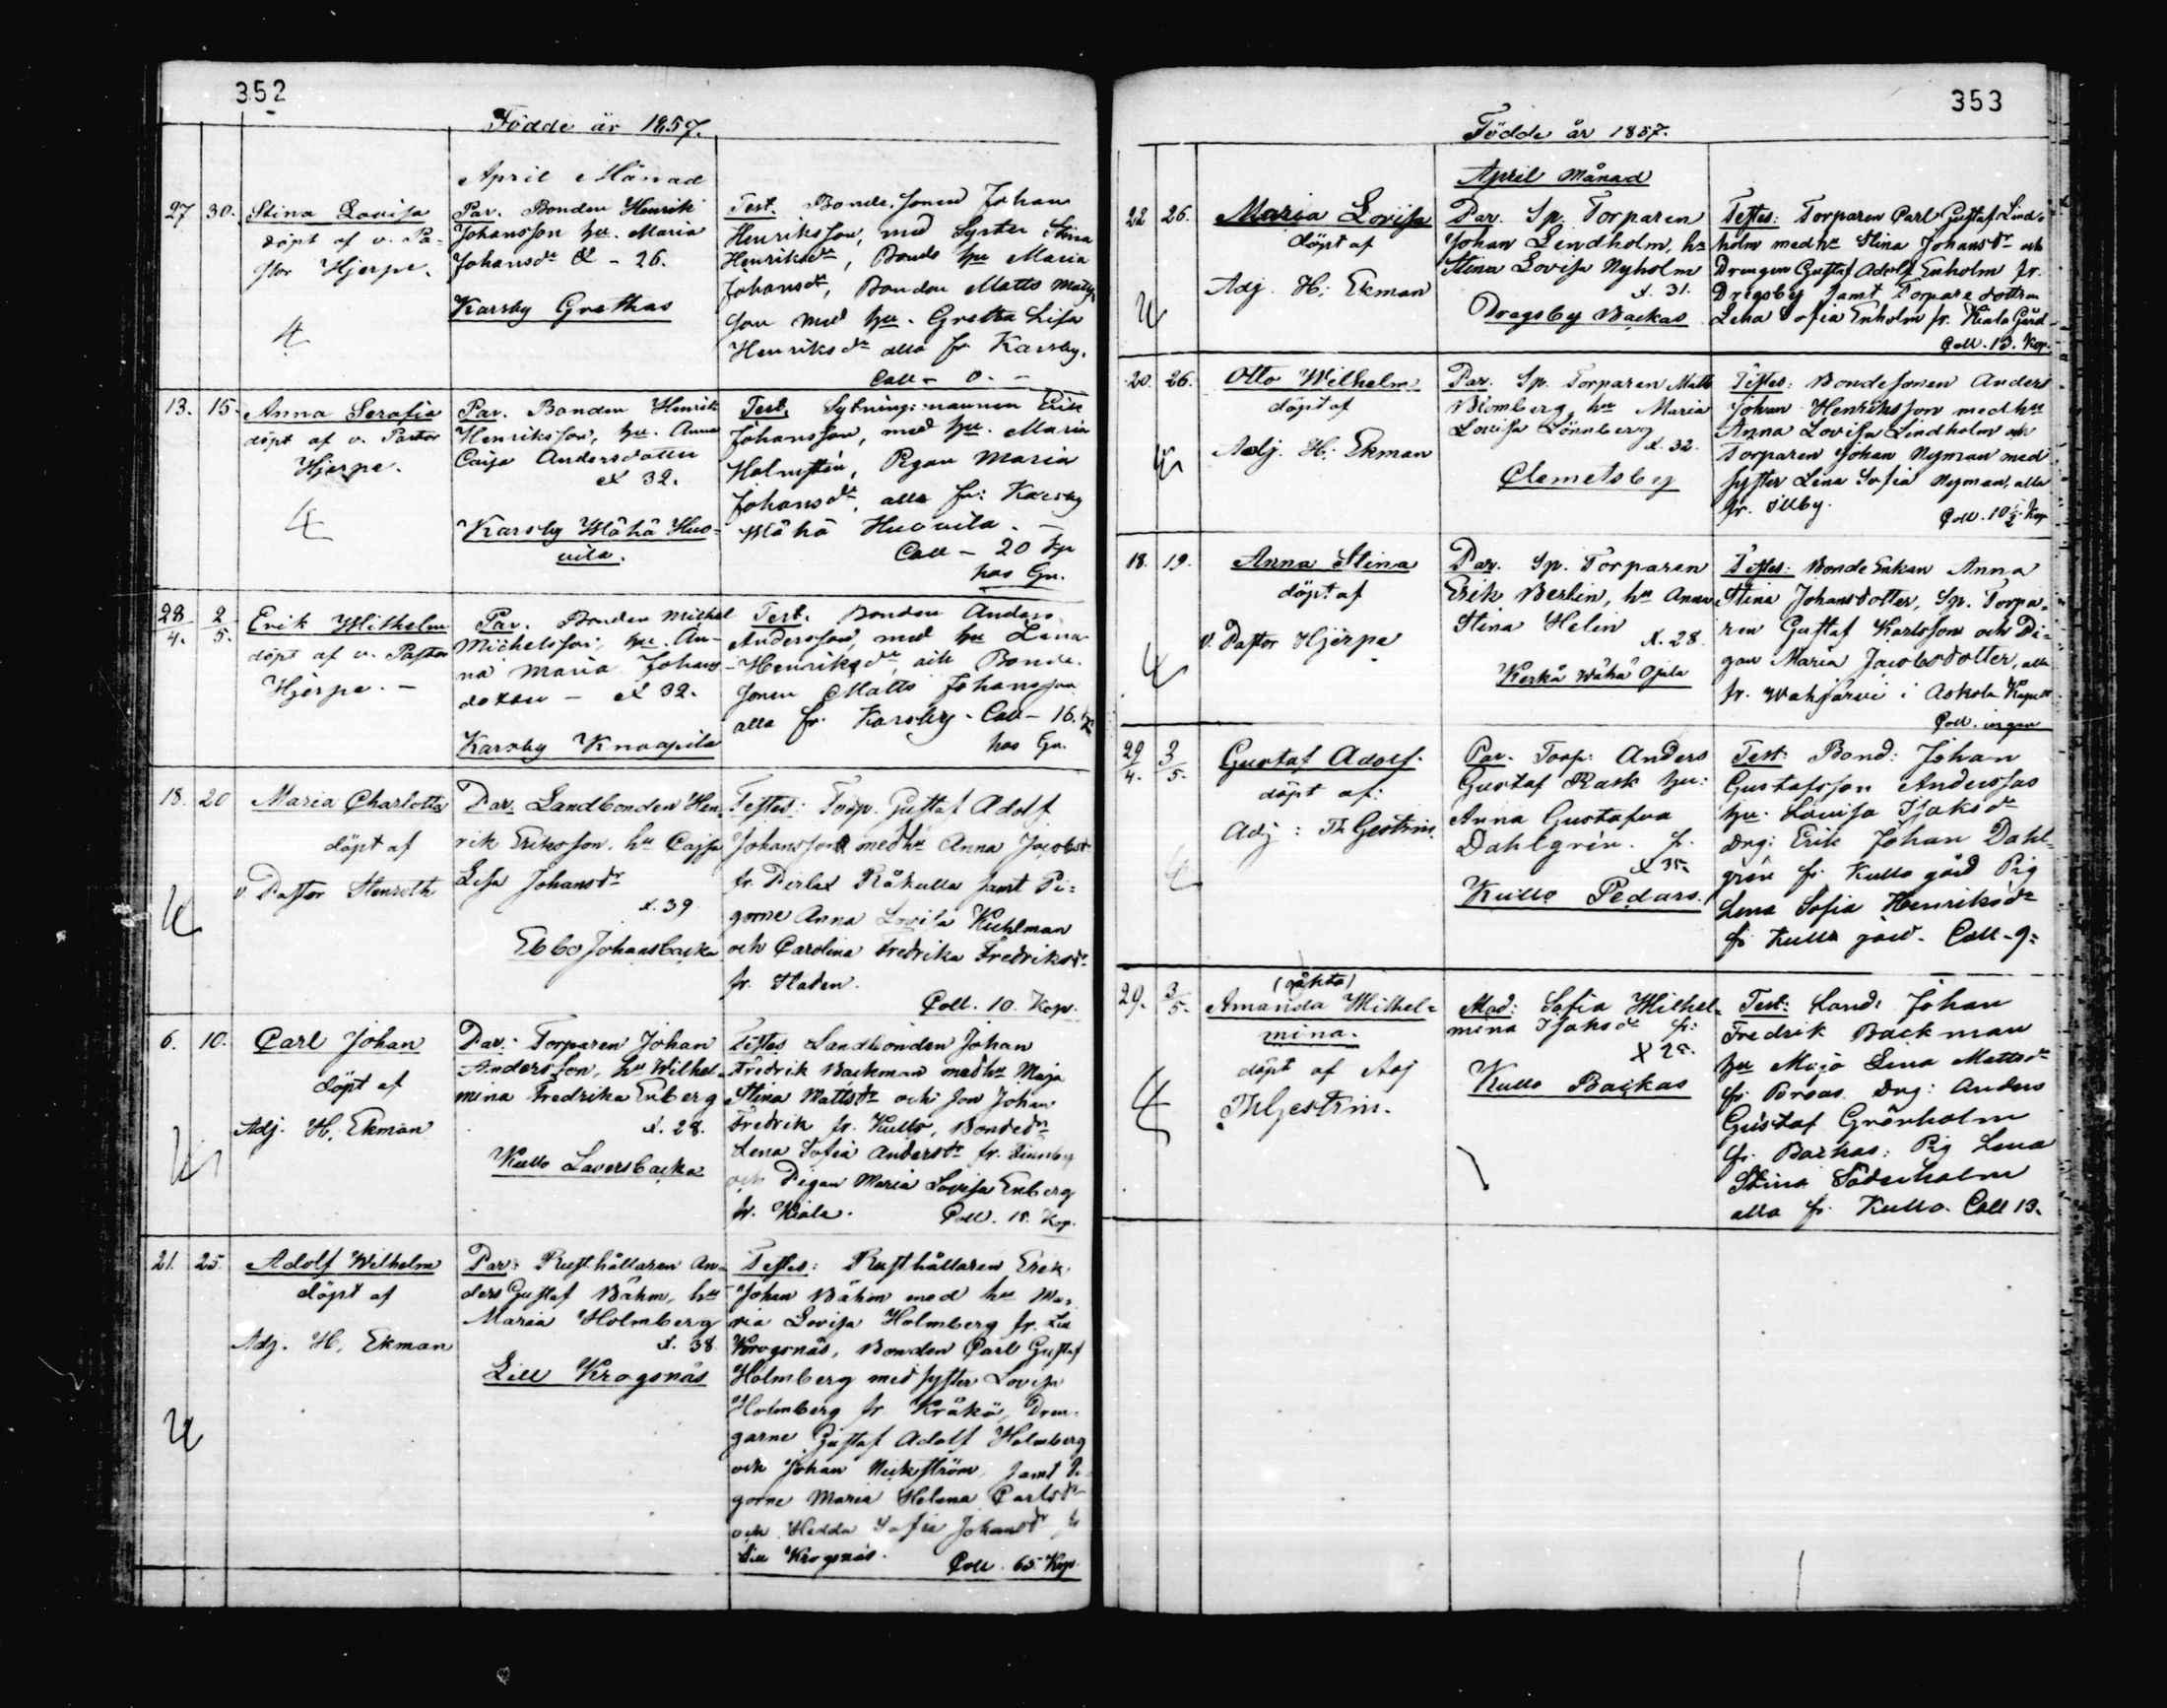 352
Födde år 1857.
April Månad
27 30. Stina Lovisa
döpt af v. Pa-
stor Hjerpe.
4
Par. Bonden Henrik
Johansson hu. Maria
Johansdr Æ - 26.
Karsby Grethas
Test. Bonde-sonen Johan
Henriksson, med Syster Stina
Henriksdr, Bonde hu Maria
Johansdr, Bonden Matts Matts
son med hu. Gretha Lisa
Henriksdr alla fr. Karsby.
Coll - 0. -
13. 15. Anna Serafia
döpt af v. Pastor
Hjerpe.
4
Par. Bonden Henrik
Henriksson, hu. Anna
Caisa Andersdotter
Æ 32.
Karsby Wähä Huo-
vila.
Test. Sytningsmannen Erik
Johansson, med hu. Maria
Holmstén, Pigan Maria
Johansdr, alla fr: Karsby
Wähä Huovila. -
Coll - 20 kp
hos Gn.
28/4. 2/5. Erik Wilhelm
döpt af v. Pastor
Hjerpe. -
Par. Bonden Michel
Michelsson, hu. An-
na Maria Johans
dotter - Æ 32.
Karsby Knaapila
Test. Bonden Anders
Andersson, med hu Lena
Henriksdr, och Bonde-
sonen Matts Johansson
alla fr. Karsby - Coll - 16.
hos Gn.
18. 20 Maria Charlotta
döpt af
v. Pastor Stenroth
Par. Landbonden Hen-
rik Eriksson, hu Cajsa
Lisa Johansdr
Æ. 39
Ebbo Johansbacka
Testes: Torp. Gustaf Adolf
Johansson med hu Anna Jacobsdr
fr. Perlax Råkulla samt Pi-
gorne Anna Lovisa Kuhlman
och Carolina Fredrika Fredriksdr
fr. Staden.
Coll. 10. Kop.
6. 10. Carl Johan
döpt af
Adj. H. Ekman
Par: Torparen Johan
Andersson, hu Wilhel-
mina Fredrika Enberg
Æ. 28.
Kullo Laversbacka
Testes Landbonden Johan
Fredrik Backman med hu Maja
Stina Mattsdr och son Johan
Fredrik fr. Kullo, Bondedr
Lena Sofia Andersdr fr. Finnby
och Pigan Maria Lovisa Enberg
fr. Kiala. Coll. 15. Kop.
21. 25. Adolf Wilhelm
döpt af
Adj. H. Ekman
Par: Rusthållaren An-
ders Gustaf Båhm, hu
Maria Holmberg
Æ. 38.
Lill Krogsnäs
Testes: Rusthållaren Erik
Johan Båhm med hu Ma-
ria Lovisa Holmberg fr. Lill
Krogsnäs, Bonden Carl Gustaf
Holmberg med syster Lovisa
Holmberg fr. Kråkö, Dren-
garne Gustaf Adolf Holmberg
och Johan Nickström, samt Pi-
gorne Maria Helena Carlsdr
och Hedda Sofia Johansdr fr
Lill Krogsnäs. Coll. 65. Kop.
353
Födde år 1857.
April Månad
22 26. Maria Lovisa
döpt af
Adj. H. Ekman
Par. Sp. Torparen
Johan Lindholm, hu
Stina Lovisa Nyholm
Æ. 31.
Dragsby Backas
Testes: Torparen Carl Gustaf Lind-
holm med hu Stina Johansdr och
Drengen Gustaf Adolf Enholm fr.
Dragsby samt Torpare dottren
Lena Sofia Enholm fr. Kiala Gård
Coll. 13. Kop.
20. 26. Otto Wilhelm
döpt af
Adj. H. Ekman
Par. Sp. Torparen Matts
Blomberg, hu Maria
Lovisa Lönnberg
Æ. 32.
Clemetsby
Testes: Bondesonen Anders
Johan Henriksson med hu
Anna Lovisa Lindholm och
Torparen Johan Nyman med
syster Lena Sofia Nyman, alla
fr. Illby. Coll. 10 1/2 Kop
18. 19. Anna Stina
döpt af
v. Pastor Hjerpe
Par. Sp. Torparen
Erik Berlin, hu Anna
Stina Helin
Æ. 28.
Kerko Wähä Ojala
Testes: Bonde Enkan Anna
Stina Johansdotter, Sp. Torpa-
ren Gustaf Karlsson och Pi-
gan Maria Jacobsdotter, alla
fr. Wahjärvi i Askola Kapell
Coll. ingen
29/4. 3/5. Gustaf Adolf.
döpt af:
Adj: Th. Gestrin.
Par. Torp: Anders
Gustaf Rask hu:
Anna Gustafva
Dahlgrén. fr.
Æ 35.
Kullo Pedars.
Test: Bond: Johan
Gustafsson Anderssas
hu. Lovisa Isaksdr
Drg: Erik Johan Dahl-
grén fr. Kullo gård Pig
Lena Sofia Henriksdr
fr Kullo gård. Coll - 9:
29. 3/5. (oäkta)
Amanda Wilhel-
mina.
döpt af Adj
Th Gestrin.
Mod: Sofia Wilhel-
mina Isaksdr fr:
Æ 25.
Kullo Backas
Test: Land: Johan
Fredrik Backman
hu Maja Lena Mattsdr
fr Broas. Drg: Anders
Gustaf Grönholm
fr. Backas: Pig Lena
Stina Söderholm
alla fr. Kullo. Coll 13.